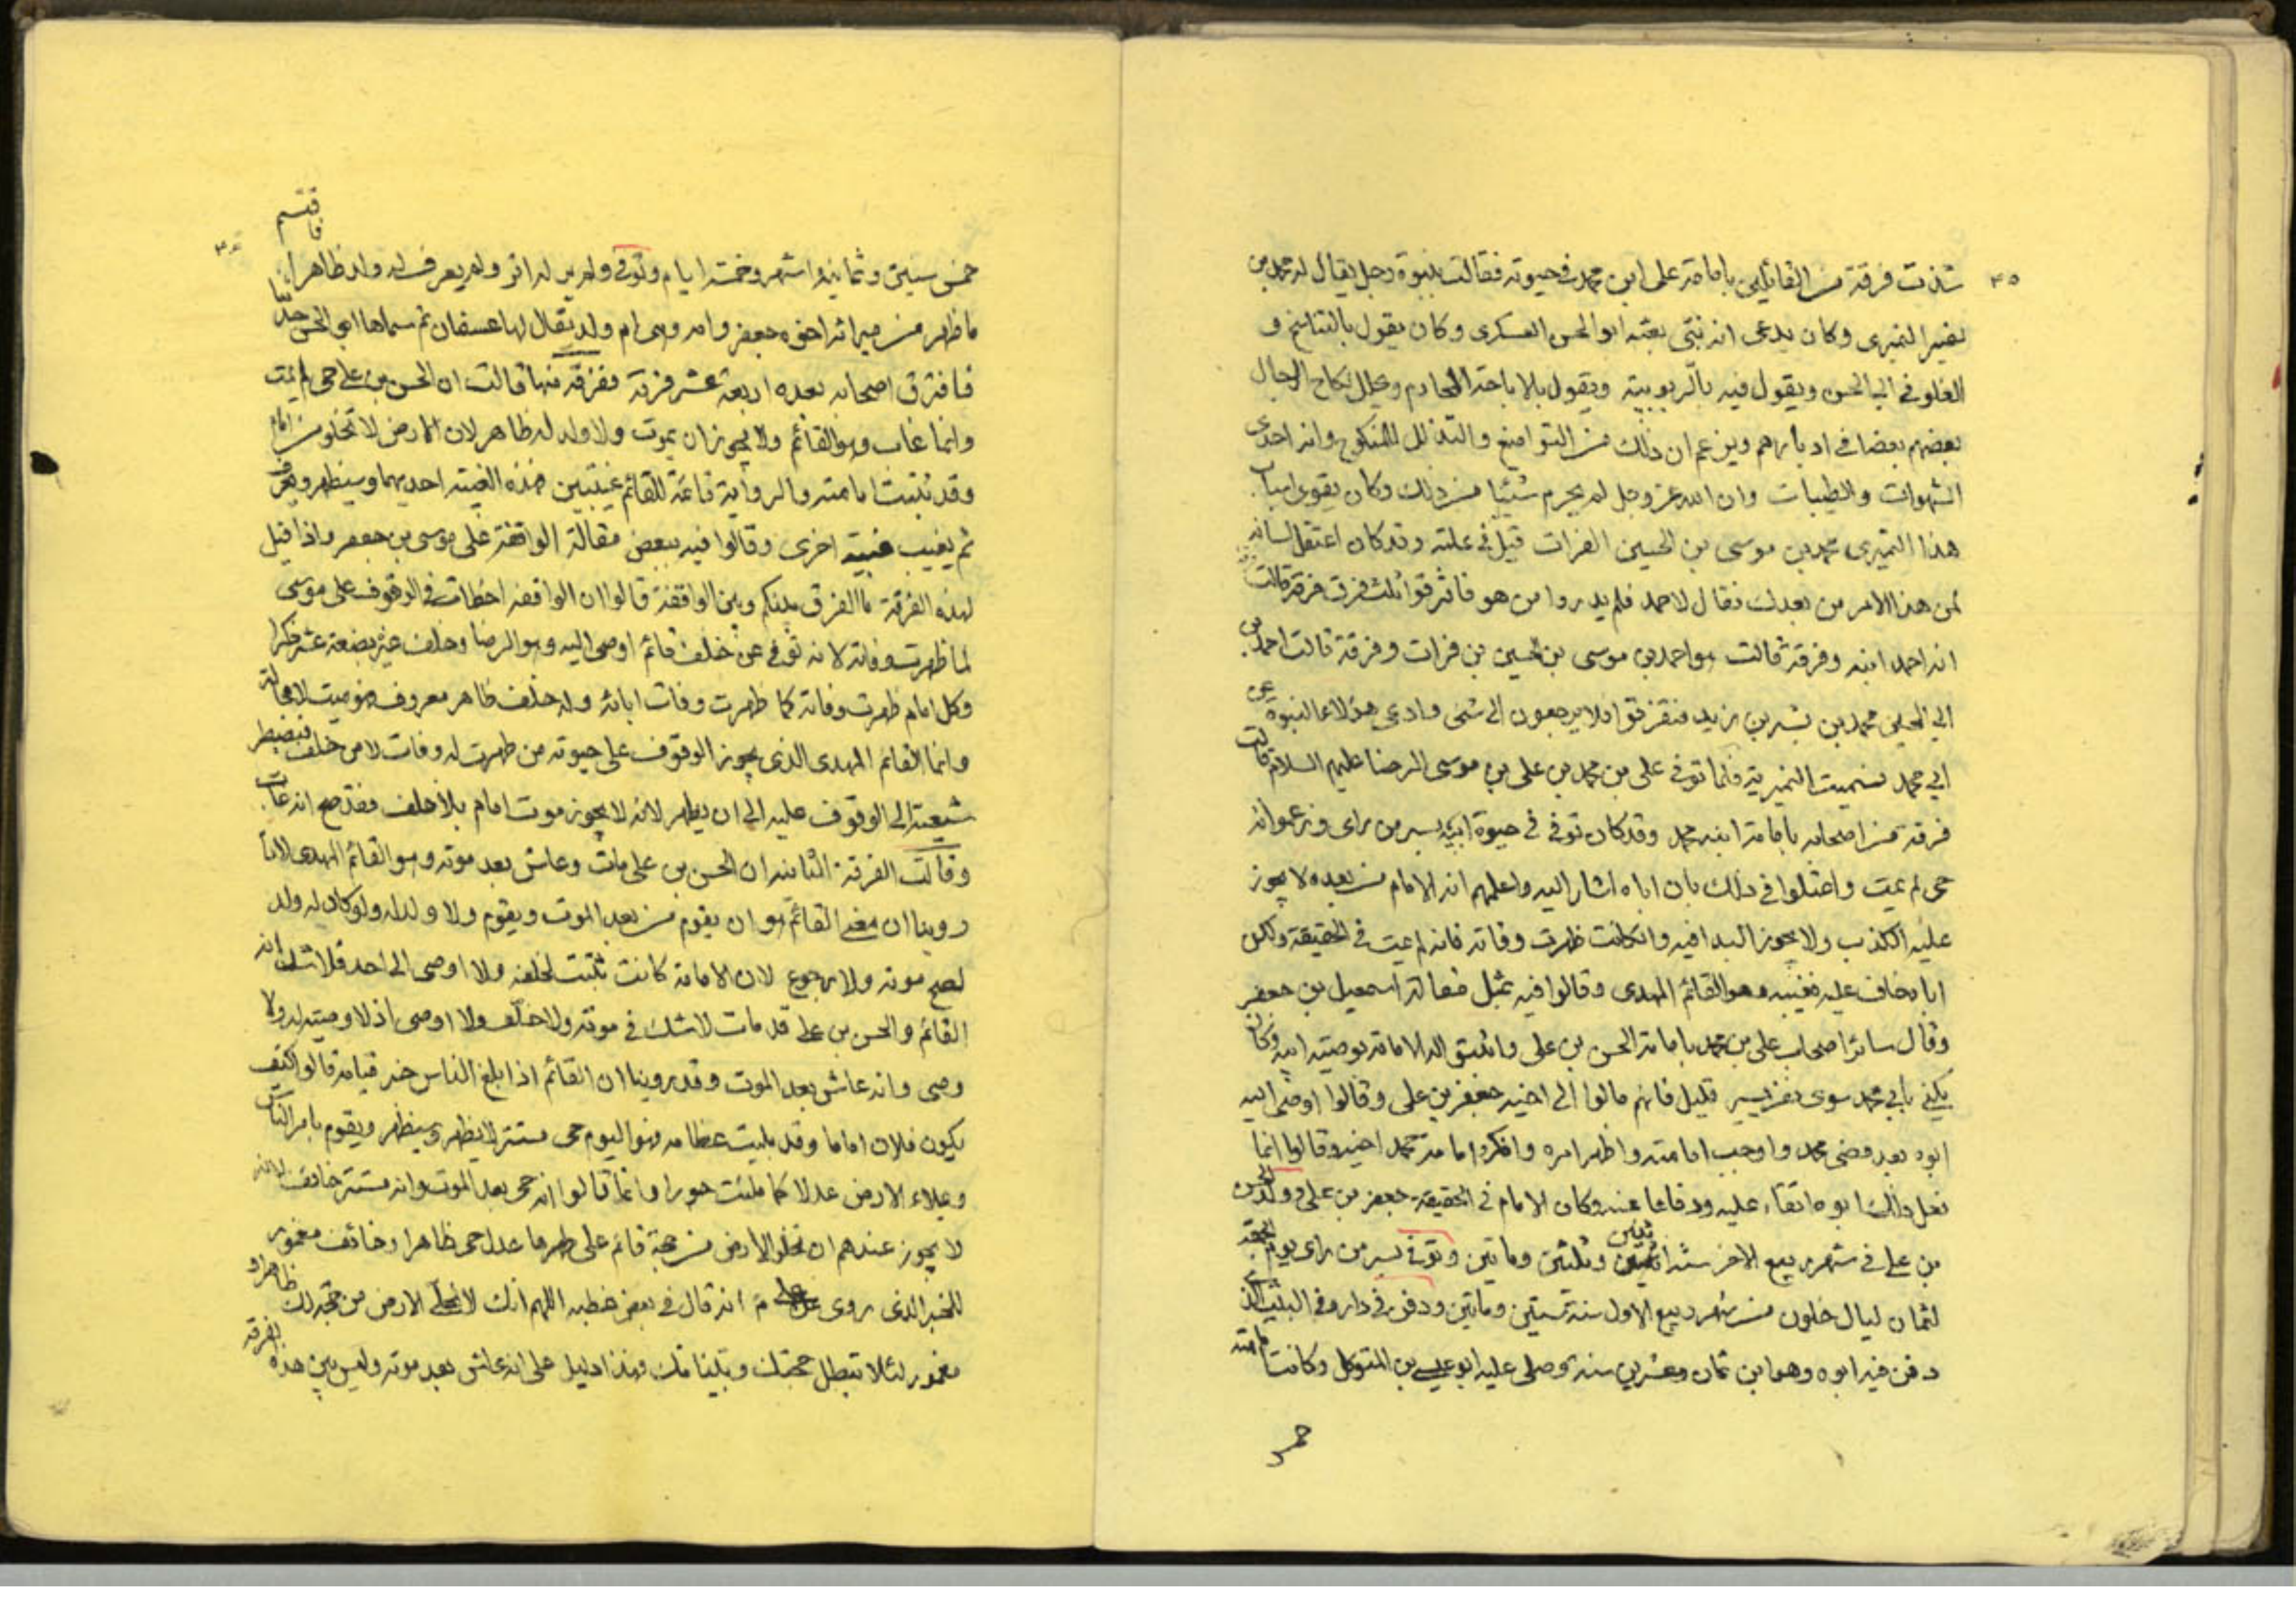 ٣٥
شذت فرقة من القائلين بامامة على ابن محمد في حيوته فقالت بنبوة رجل يقال له محمد بن
نصير النميرى وكان يدعى انه نبى بعثه ابو الحسن العسكرى وكان يقول بالتناسخ و
الغلو في ابي الحسن ويقول فيه بالربوبية ويقول بالاباحة المحارم ويحلل نكاح الرجال
بعضهم بعضا في ادبارهم ويزعم ان ذلك من التواضع والتذلل للمنكوح وانه احدى
الشهوات والطيبات وان الله عز وجل لم يحرم شيئا من ذلك وكان يقوى اسباب
هذا النميرى محمد بن موسى بن الحسين الفرات قيل في علته وقد كان اعتقل لسانه
لمن هذا الامر من بعدك فقال لاحمد فلم يدروا من هو فافترقوا ثلث فرق فرقة قالت
انه احمد ابنه وفرقة قالت هو احمد بن موسى بن حسين بن فرات وفرقة قالت احمد بن
ابي الحسين محمد بن بشر بن زيد فتفرقوا فلا يرجعون الى شئ وادعى هؤلاء النبوة عن
ابي محمد فسميت النميرية فلما توفى على بن محمد بن على بن موسى الرضا عليهم السلام قالت
فرقة من اصحابه بامامة ابنه محمد وقد كان توفى في حيوة ابيه بسر من راى وزعموا انه
حى لم يمت واعتلوا في ذلك بان اباه اشار اليه واعلمهم انه الامام من بعده لا يجوز
عليه الكذب ولا يجوز البدا فيه وان كانت ظهرت وفاته فانه لم يمت في الحقيقة ولكن
اباه خاف عليه فغيبه وهو القائم المهدى وقالوا فيه بمثل مقالة اسمعيل بن جعفر
وقال سائر اصحاب على بن محمد بامامة الحسن بن على واثبتوا له الامامة بوصية ابيه وكان
يكنى بابي محمد سوى نفر يسير قليل فانهم مالوا الى اخيه جعفر بن على وقالوا اوصى اليه
ابوه بعد مضى محمد واوجب امامته واظهر امره وانكروا امامة محمد اخيه وقالوا انما
فعل ذلك ابوه اتقاء عليه ودفاعا عنه وكان الامام في الحقيقة جعفر بن على وولد الحسن
بن على في شهر ربيع الاخر سنة اثنين وثلثين ومأتين وتوفى بسر من راى يوم الجمعة
لثمان ليال خلون من شهر ربيع الاول سنة ستين ومأتين ودفن في داره في البيت الذى
دفن فيه ابوه وهو ابن ثمان وعشرين سنة وصلى عليه ابو عيسى بن المتوكل وكانت امامته
خمس
خمس سنين وثمانية اشهر وخمسة ايام وتوفى ولم ير له اثر ولم يعرف له ولد ظاهرا فاقتسم
ما ظهر من ميراثه اخوه جعفر وامه وهى ام ولد يقال لها عسفان ثم سماها ابو الحسن حديثا
فافترق اصحابه بعده اربعة عشر فرقة ففرقة منها قالت ان الحسن بن على حى لم يمت
وانما غاب وهو القائم ولا يجوز ان يموت ولا ولد له ظاهر لان الارض لا تخلو من امام
وقد ثبتت امامته والرواية قائمة للقائم غيبتين فهذه الغيبة احديهما وسيظهر ويعرف
ثم يغيب غيبة اخرى وقالوا فيه ببعض مقالة الواقفة على موسى بن جعفر واذا قيل
لهذه الفرقة ما الفرق بينكم وبين الواقفة قالوا ان الواقفة اخطات في الوقوف على موسى
لما ظهرت وفاته لانه توفى عن خلف قائم اوصى اليه وهو الرضا وخلف غيره بضعة عشر ذكرا
وكل امام ظهرت وفاته كما ظهرت وفات ابائه وله خلف ظاهر معروف فهو ميت لا محالة
وانما القائم المهدى الذى يجوز الوقوف على حيوته من ظهرت له وفات لا من خلف فيضطر
شيعته الى الوقوف عليه الى ان يظهر لانه لا يجوز موت امام بلا خلف فقد صح انه غاب
وقالت الفرقة الثانية ان الحسن بن على مات وعاش بعد موته وهو القائم المهدى لانا
روينا ان معنى القائم هو ان يقوم من بعد الموت ويقوم ولا ولد له ولو كان له ولد
لصح موته ولا رجوع لان الامامة كانت تثبت لخلفه ولا اوصى الى احد فلا شك انه
القائم والحسن بن على قد مات لا شك في موته ولا خلف ولا اوصى اذ لا وصية له ولا
وصى وانه عاش بعد الموت وقد روينا ان القائم اذا بلغ الناس خبر قيامه قالوا كيف
يكون فلان اماما وقد بليت عظامه فهو اليوم حى مستتر لا يظهر وسيظهر ويقوم بامر الناس
ويملاء الارض عدلا كما ملئت جورا وانما قالوا انه حى بعد الموت وانه مستتر خائف لانه
لا يجوز عندهم ان تخلو الارض من حجة قائم على ظهرها عدل حى ظاهرا وخائف مغمور
للخبر الذى روى عن على انه قال في بعض خطبه اللهم انك لا تخلى الارض من حجة لك ظاهر او
مغمور لئلا تبطل حججك وبيناتك فهذا دليل على انه عاش بعد موته وليس بين هذه الفرقة